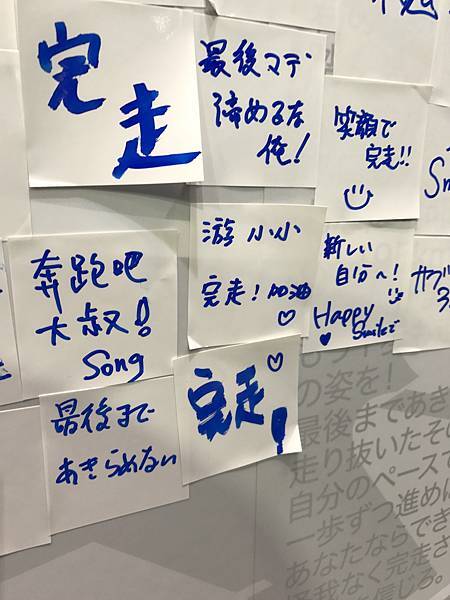 完
走
最後マデ
諦めるな
俺！
笑顔で
完走!!
奔跑吧
大叔!
Song
游小小
完走！加油
新しい
自分へ！
Happy
Smileで
最後まで
あきらめない
完走！
の姿を！
最後まであき
走り抜いたその
自分のペースで
一歩ずつ進めば
あなたならでき
怪我なく完走さ
を信じろ。